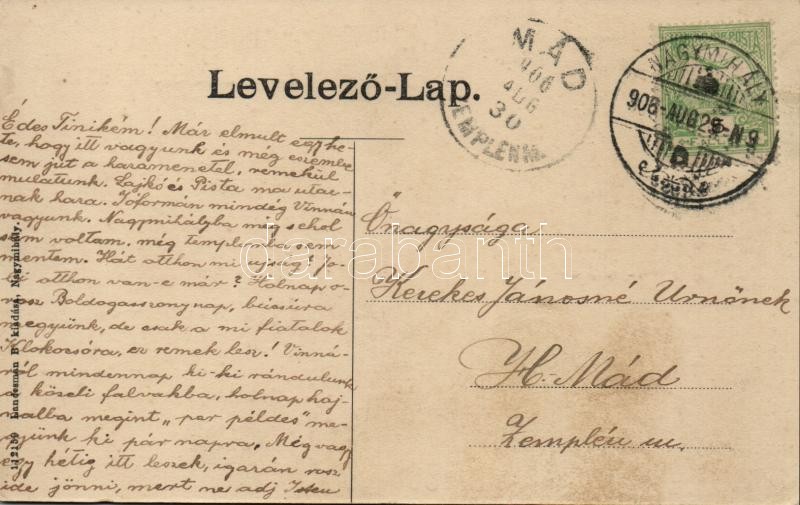 Levelező-Lap.
MÁD
906
AUG
30
ZEMPLÉN M.
MAGYAR KIR. POSTA
NAGYMIHÁLY
906-AUG29-N9
Édes Tinikém! Már elmult egy he-
te, hogy itt vagyunk és még eszembe
sem jut a hazamenetel, remekül
mulatunk. Lajkó és Pista ma utaz-
nak haza. Jóformán mindég Vinnán
vagyunk. Nagymihályba még sehol
sem voltam, még templomba sem
mentem. Hát otthon mi ujság? Jo-
li otthon van-e már? Holnap o-
rosz Boldogasszonynap, búcsúra
megyünk, de csak a mi fiatalok
Klokocsóra, ez remek lesz! Vinná-
ról mindennap ki-ki rándulunk
a közeli falvakba, holnap haj-
nalba megint "per pédes" me-
gyünk ki pár napra. Még vagy
egy hétig itt leszek, igazán rossz
ide jönni, mert ne adj Isten
Őnagysága
Kerekes Jánosné Urnőnek
H. Mád
Zemplén m.
112189 Landesman B. kiadása, Nagymihály.
darabanth